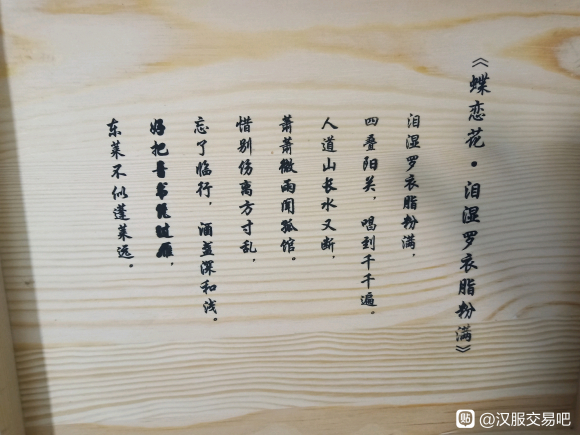 《蝶恋花·泪湿罗衣脂粉满》
泪湿罗衣脂粉满，
四叠阳关，唱到千千遍。
人道山长水又断，
萧萧微雨闻孤馆。
惜别伤离方寸乱，
忘了临行，酒盏深和浅。
好把音书凭过雁，
东莱不似蓬莱远。
贴 @汉服交易吧